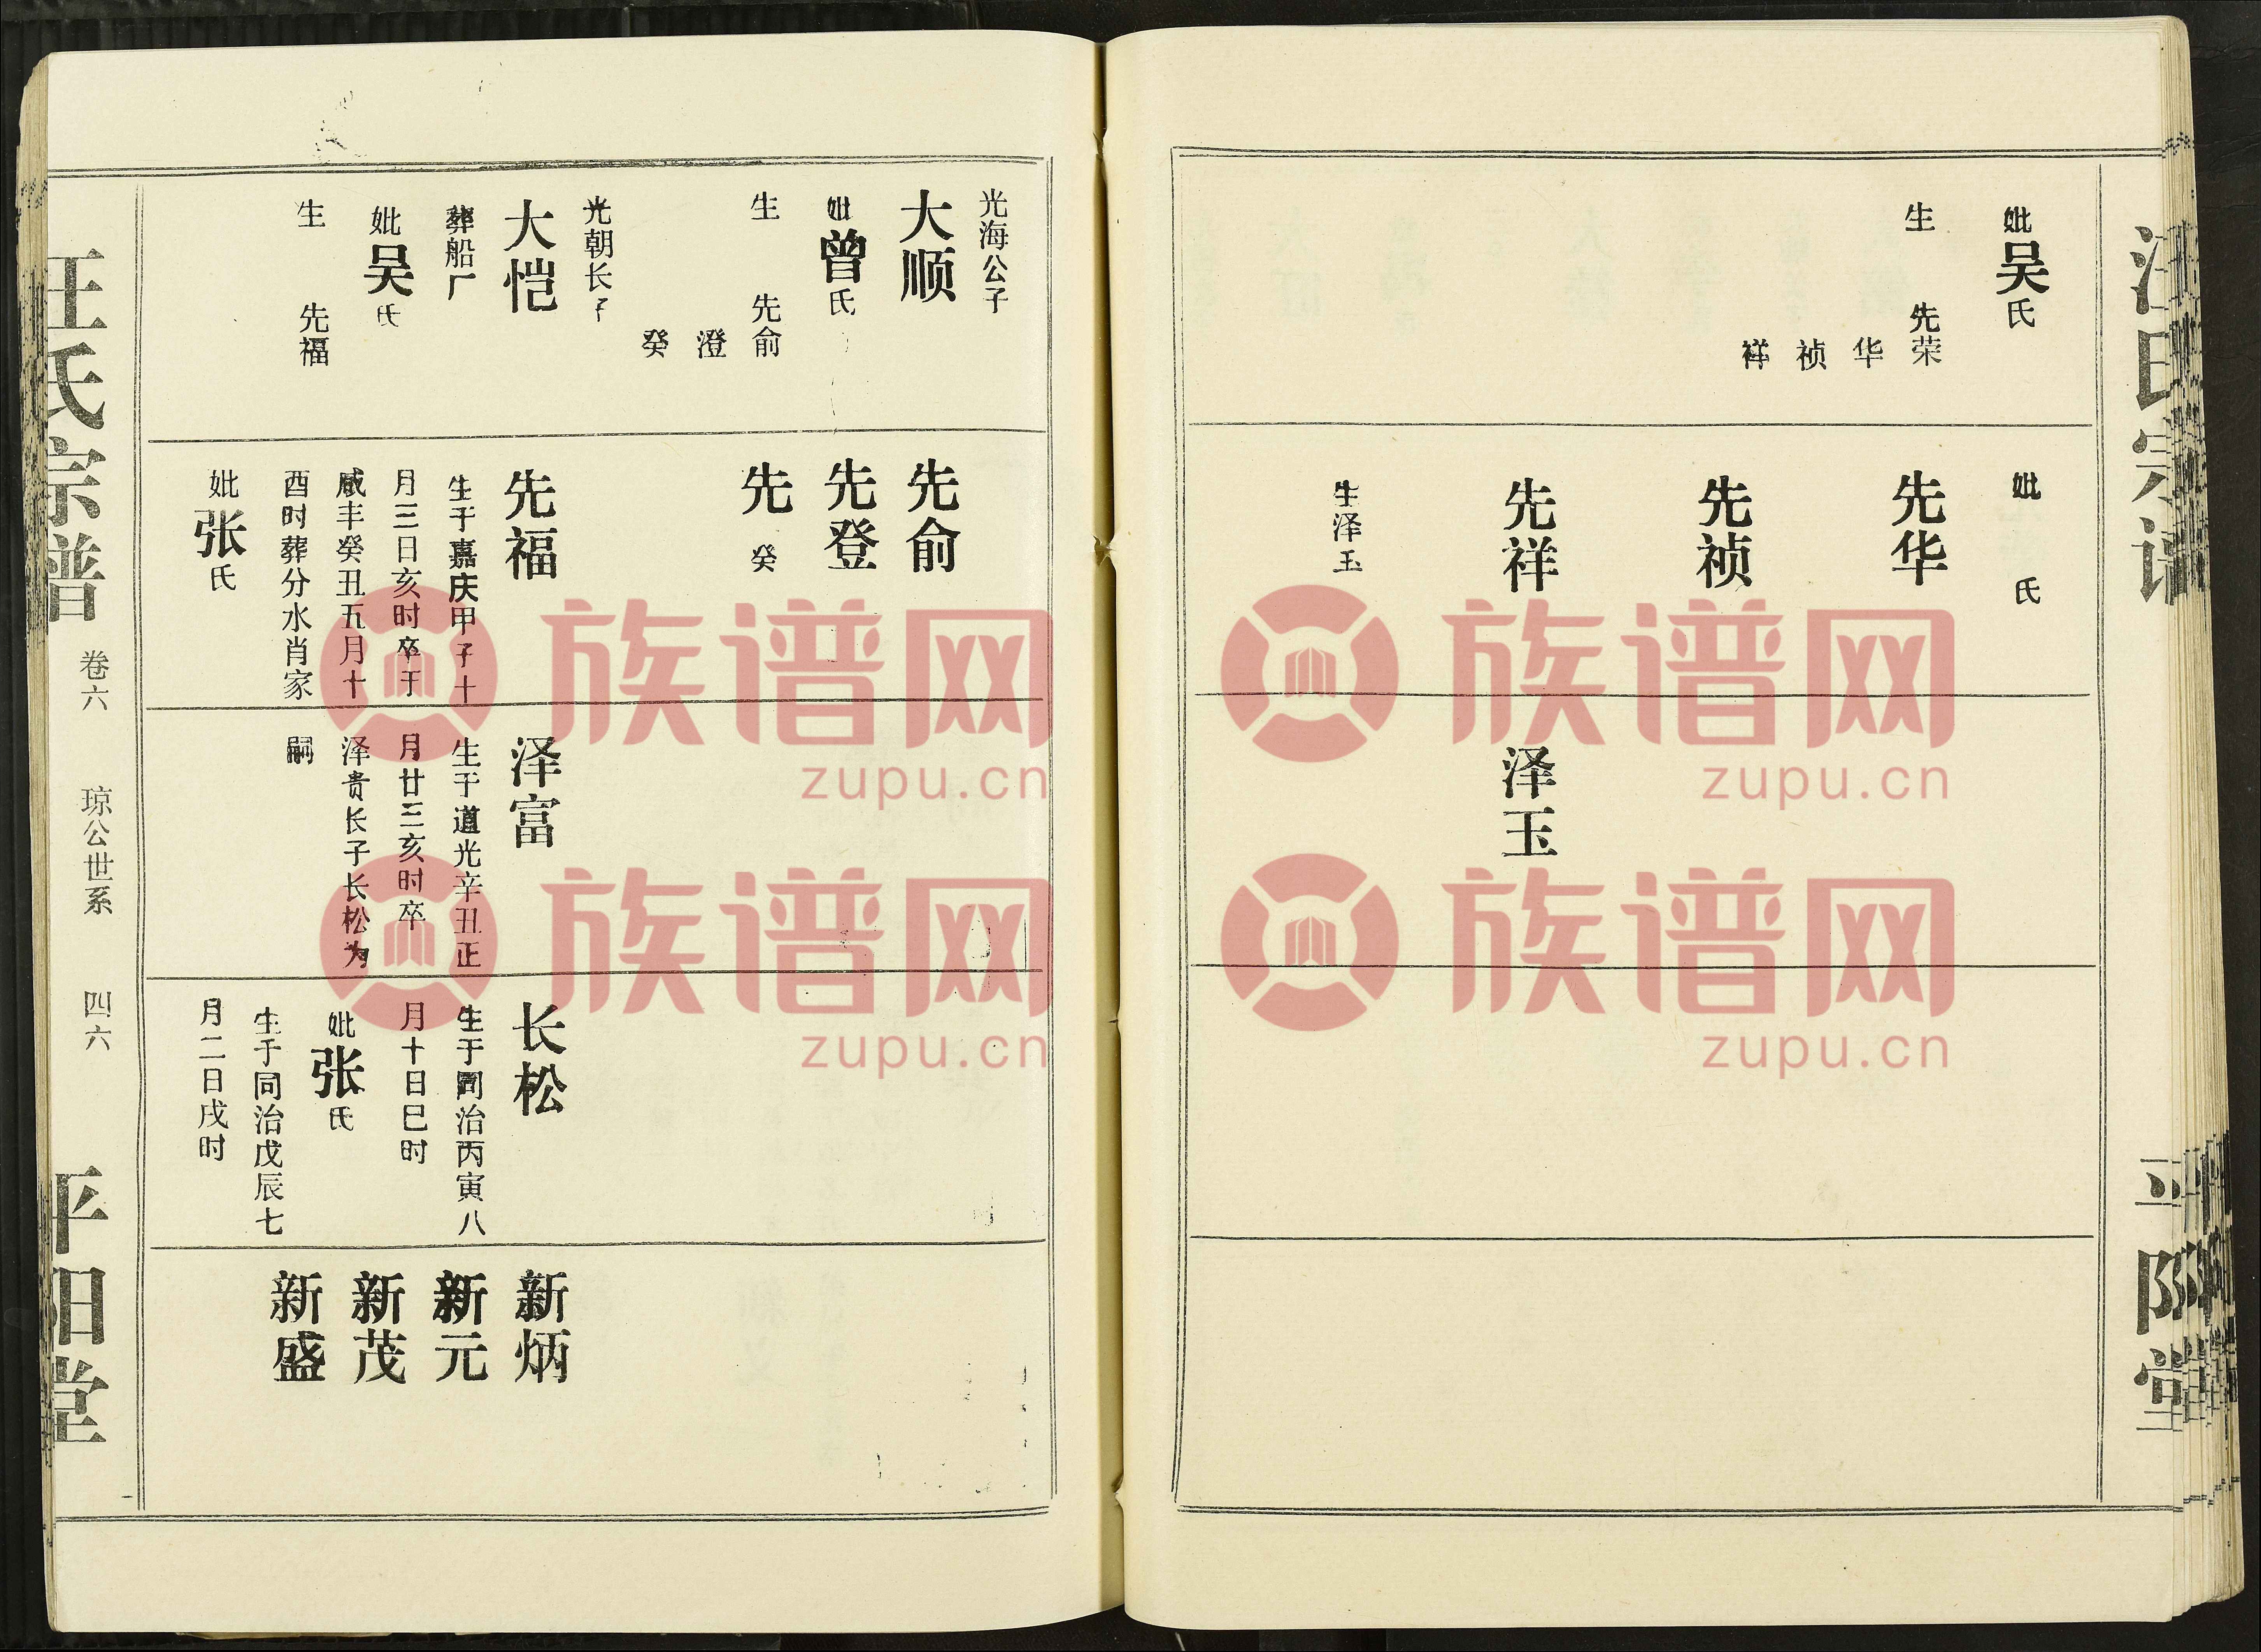 妣吴氏
生 先荣
华
祯
祥
妣 氏
先华
先祯
先祥
生泽玉
泽玉
光海公子
大顺
妣曾氏
生 先俞
澄
癸
光朝长子
大恺
葬船厂
妣吴氏
生 先福
先俞
先登
先癸
先福
生于嘉庆甲子十
月三日亥时卒于
咸丰癸丑五月十
酉时葬分水肖家
妣张氏
泽富
生于道光辛丑正
月廿三亥时卒
泽贵长子长松为
嗣
长松
生于同治丙寅八
月十日巳时
妣张氏
生于同治戊辰七
月二日戌时
新炳
新元
新茂
新盛
汪氏宗谱 卷六 琼公世系 四六 平阳堂
族谱网
zupu.cn
族谱网
zupu.cn
族谱网
zupu.cn
族谱网
zupu.cn